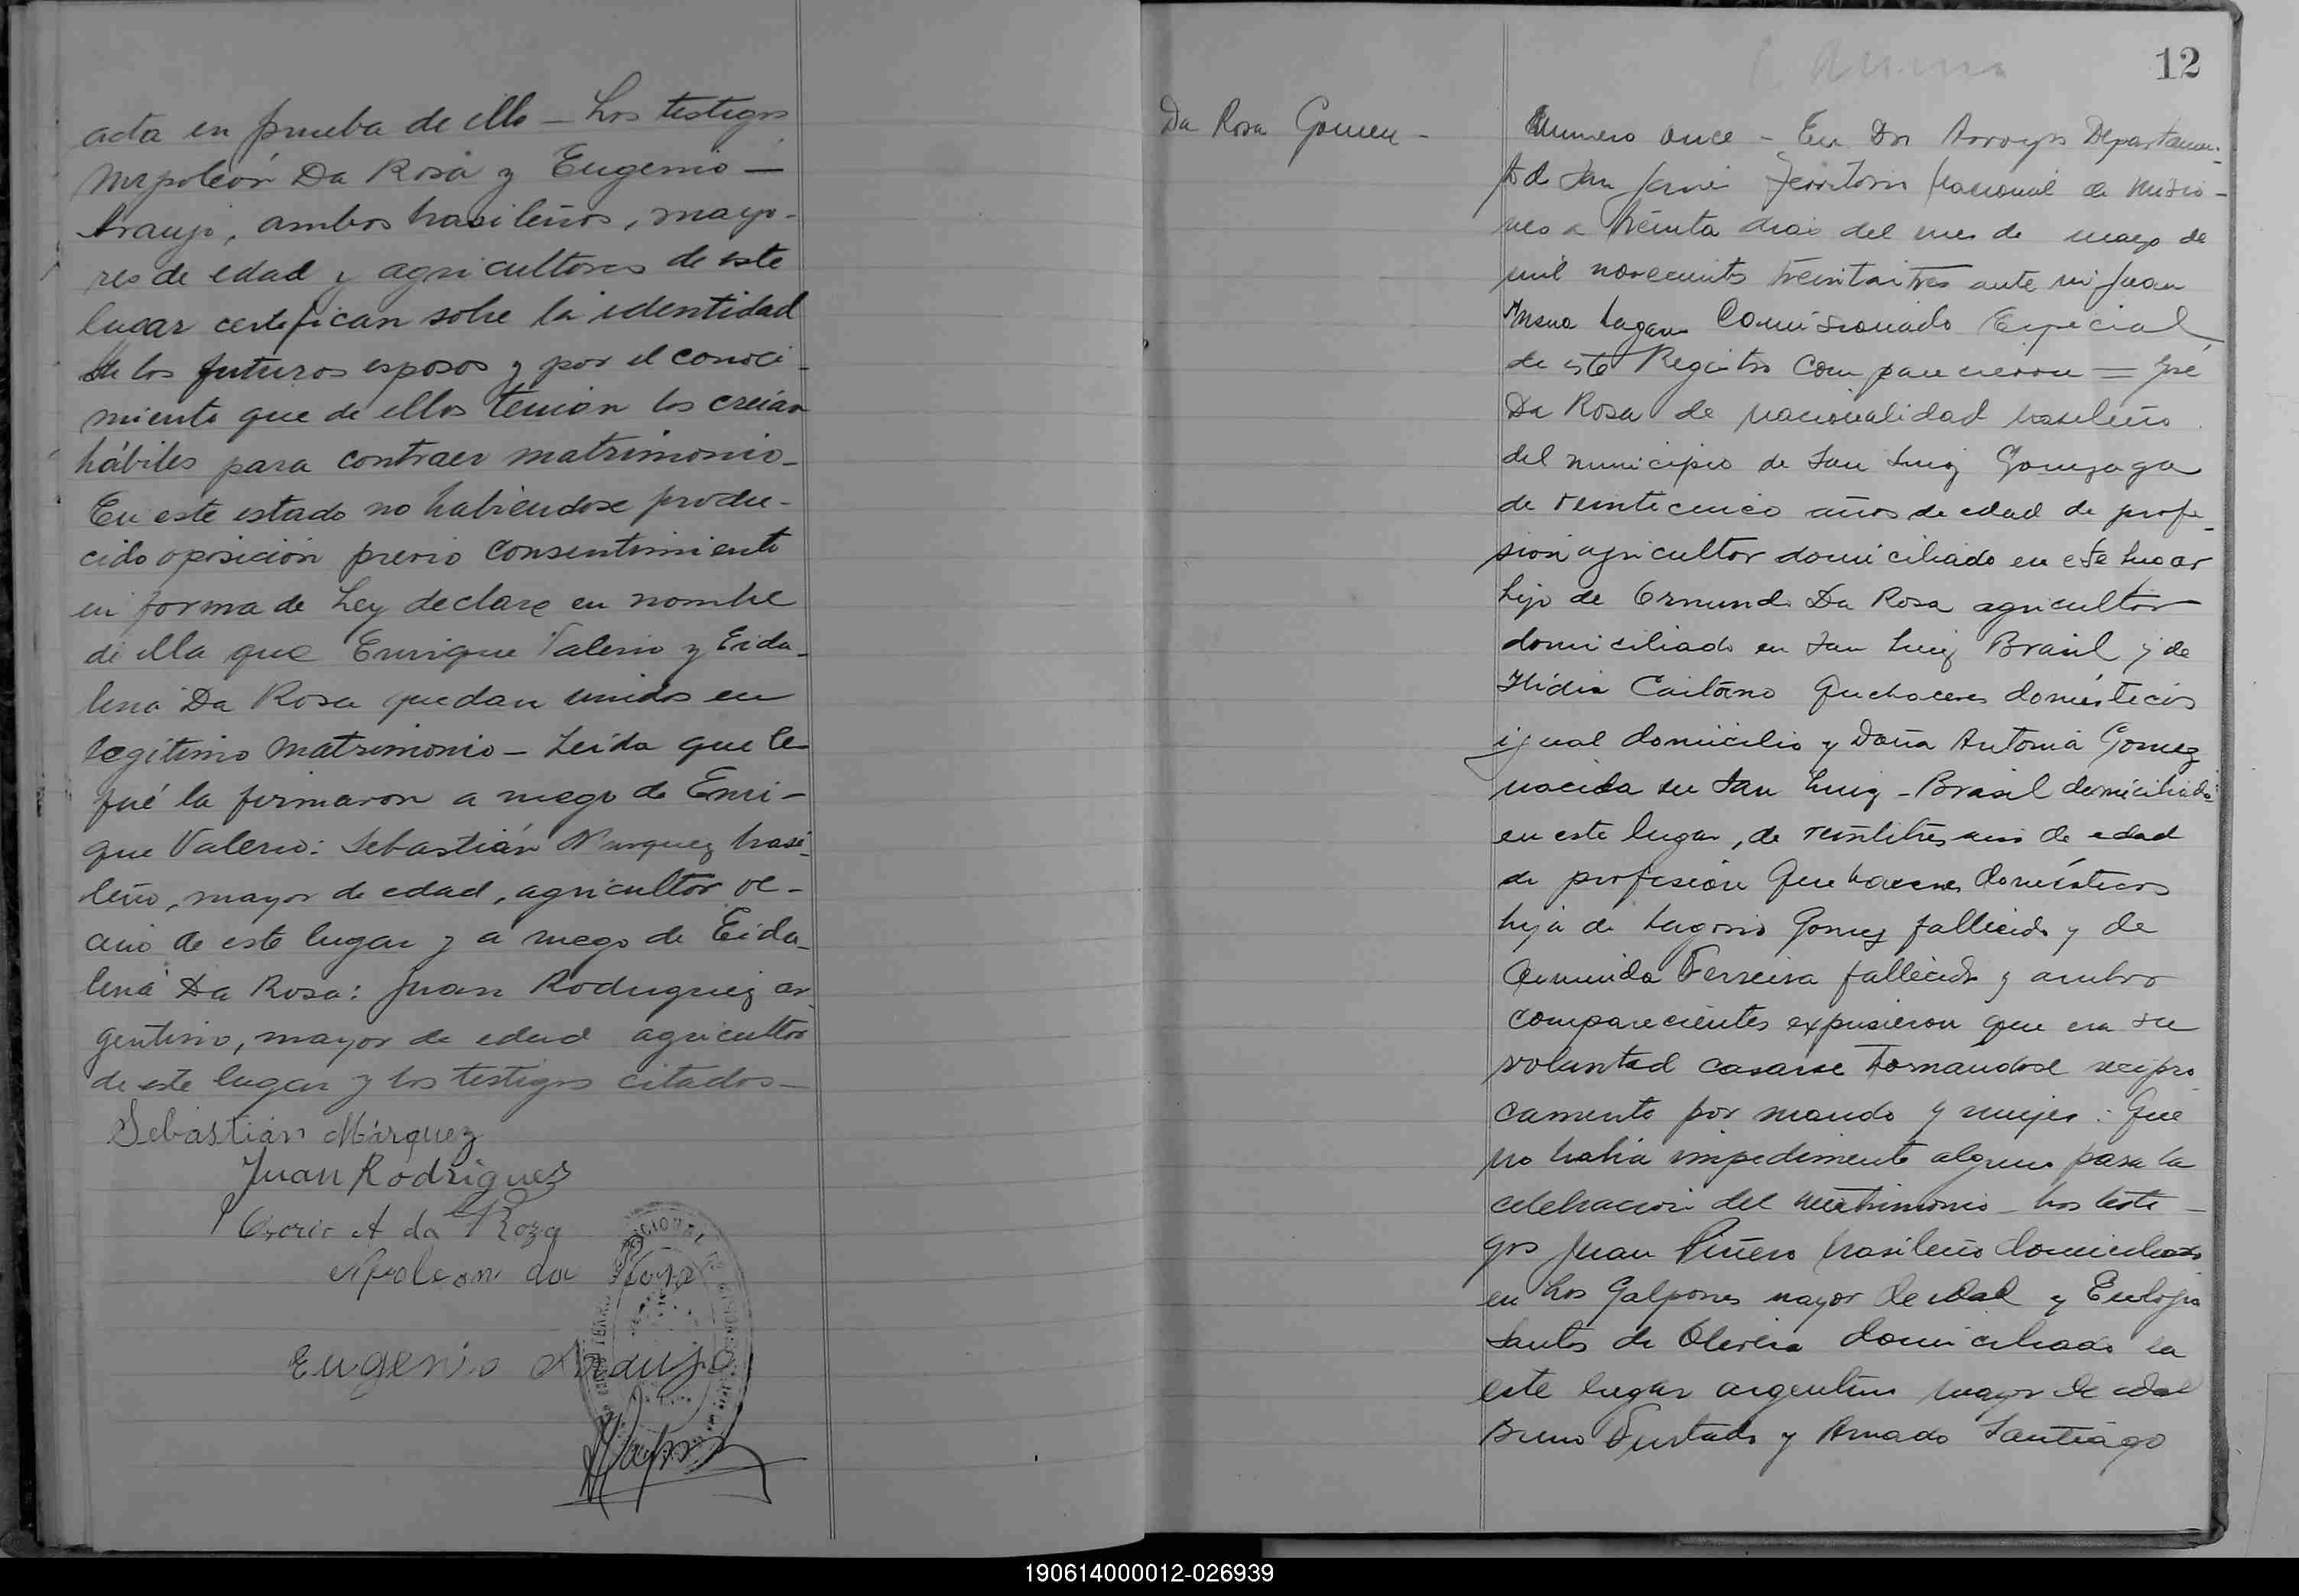 acta en prueba de ello – Los testigos
Napoleón Da Rosa y Eugenio –
Araujo, ambos brasileños, mayo-
res de edad y agricultores de este
lugar certifican sobre la identidad
de los futuros esposos y por el conoci-
miento que de ellos tenian los creían
hábiles para contraer matrimonio –
En este estado no habiendose produ-
cido oposición previo consentimiento
en forma de Ley declaro en nombre
de ella que Enrique Valerio y Eida-
lina Da Rosa quedan unidos en
legitimo matrimonio – Leída que le
fué la firmaron a ruego de Enri-
que Valerio: Sebastián Marquez brasi-
leño, mayor de edad, agricultor ve-
cino de este lugar y a ruego de Eida-
lina Da Rosa: Juan Rodriguez ar-
gentino, mayor de edad agricultor
de este lugar y los testigos citados –
Sebastián Márquez
Juan Rodriguez
A da Roza
Napoleon da Rosa
Eugenio Araujo
12
Da Rosa Gomez –
Numero once – En Dos Arroyos Departamen-
to de San Javier Territorio Nacional de Misio-
nes a treinta dias del mes de mayo de
mil novecientos treintaitres ante mi Juan
Lagar Comisionado Especial
de este Registro comparecieron = José
Da Rosa de nacionalidad brasileño
del municipio de San Luiz Gonzaga
de veinticinco años de edad de profe-
sion agricultor domiciliado en este lugar
hijo de Da Rosa agricultor
domiciliado en San Luiz Brasil y de
Quehaceres domésticos
igual domicilio y Doña Antonia Gomez
nacida en San Luiz – Brasil domiciliada
en este lugar, de veintitres años de edad
de profesion Quehaceres Domésticos
hija de Gomez fallecido y de
Ferreira fallecida y ambos
comparecientes expusieron que era su
voluntad casarse tomandose recipro
camente por marido y mujer: Que
no habia impedimento alguno para la
celebracion del matrimonio – Los testi-
gos Juan Piñero brasileño domiciliado
en Los Galpones mayor de edad y Eulogio
Santos de Olivera domiciliado en
este lugar argentino mayor de edad
Bruno Furtado y Amado Santiago
190614000012-026939